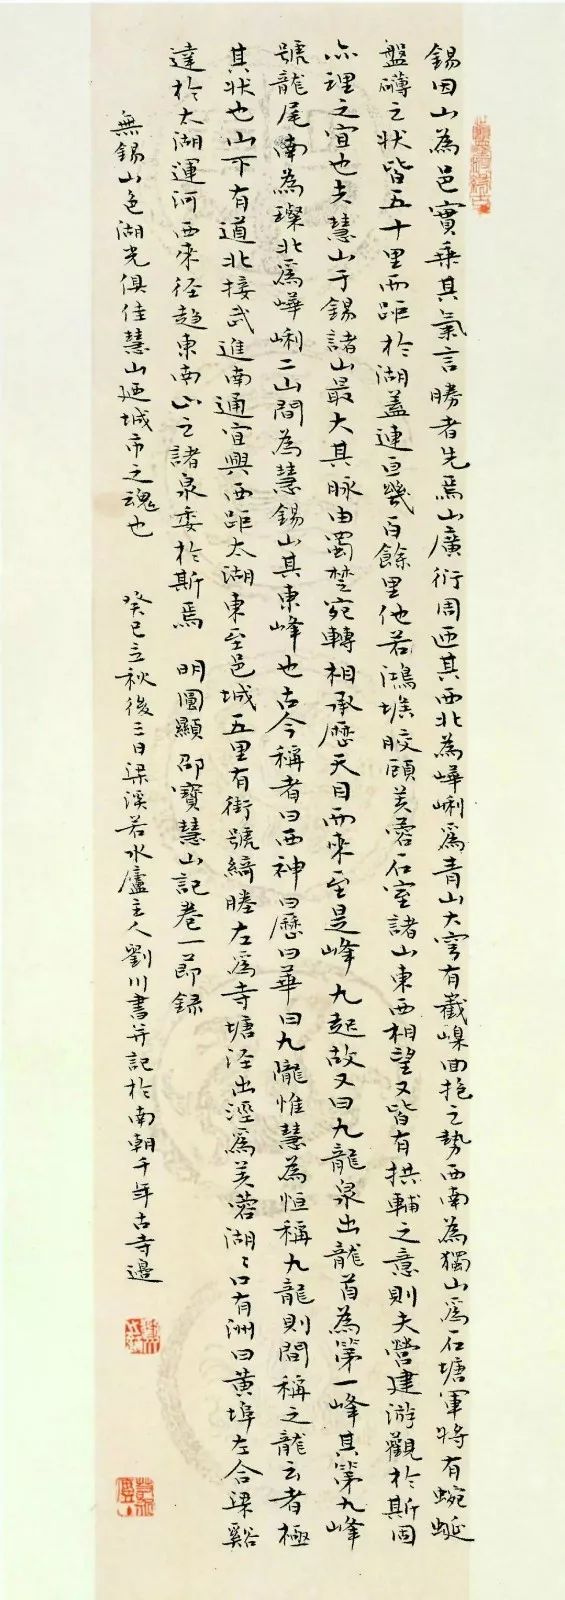 錫因山為邑實乘其氣言勝者先焉山廣衍周匝其西北為嶂峢為青山大穹有巀嵲回抱之勢西南為獨山為石塘軍將有蜿蜒
盤礴之狀皆五十里而距於湖蓋連亘幾百餘里他若鴻墩膠頤芙蓉石室諸山東西相望又皆有拱輔之意則夫營建游觀於斯固
亦理之宜也夫慧山于錫諸山最大其脉由蜀楚宛轉相承歷天目而來至是峰九起故又曰九龍泉出龍首為第一峰其第九峰
號龍尾南為璨北為嶂峢二山間為慧錫山其東峰也古今稱者曰西神曰歷曰華曰九隴惟慧為恒稱九龍則間稱之龍云者極
其狀也山下有道北接武進南通宜興西距太湖東至邑城五里有街號綺塍左為寺塘涇出涇為芙蓉湖湖口有洲曰黃埠左合梁谿
達於太湖運河西來徑趋東南山之諸泉委於斯焉 明圓顯 邵寶慧山記卷一節録
無錫山色湖光俱佳慧山廼城市之魂也 癸巳立秋後三日梁溪若水廬主人劉川書并記於南朝千年古寺邊